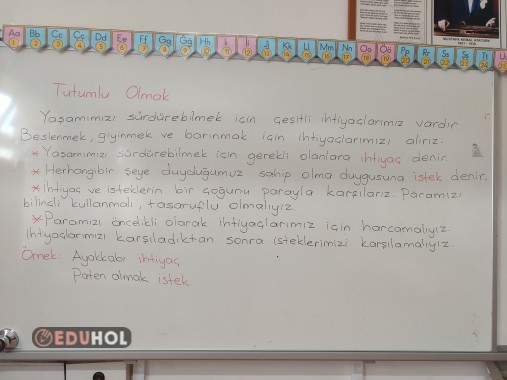 Aa Bb Cc Çç Dd Ee Ff Gg Ğğ Hh Iı İi Jj Kk Ll Mm Nn Oo Öö Pp Rr Ss Şş Tt
Tutumlu Olmak
Yaşamımızı sürdürebilmek için çeşitli ihtiyaçlarımız vardır
Beslenmek, giyinmek ve barınmak için ihtiyaçlarımızı alırız.
* Yaşamımızı sürdürebilmek için gerekli olanlara ihtiyaç denir.
* Herhangibir şeye duyduğumuz sahip olma duygusuna istek denir.
* İhtiyaç ve isteklerin bir çoğunu parayla karşılarız. Paramızı
bilinçli kullanmalı, tasarruflu olmalıyız.
* Paramızı öncelikli olarak ihtiyaçlarımız için harcamalıyız.
İhtiyaçlarımızı karşıladıktan sonra isteklerimizi karşılamalıyız.
Örnek: Ayakkabı ihtiyaç
Paten almak istek
EDUHOL